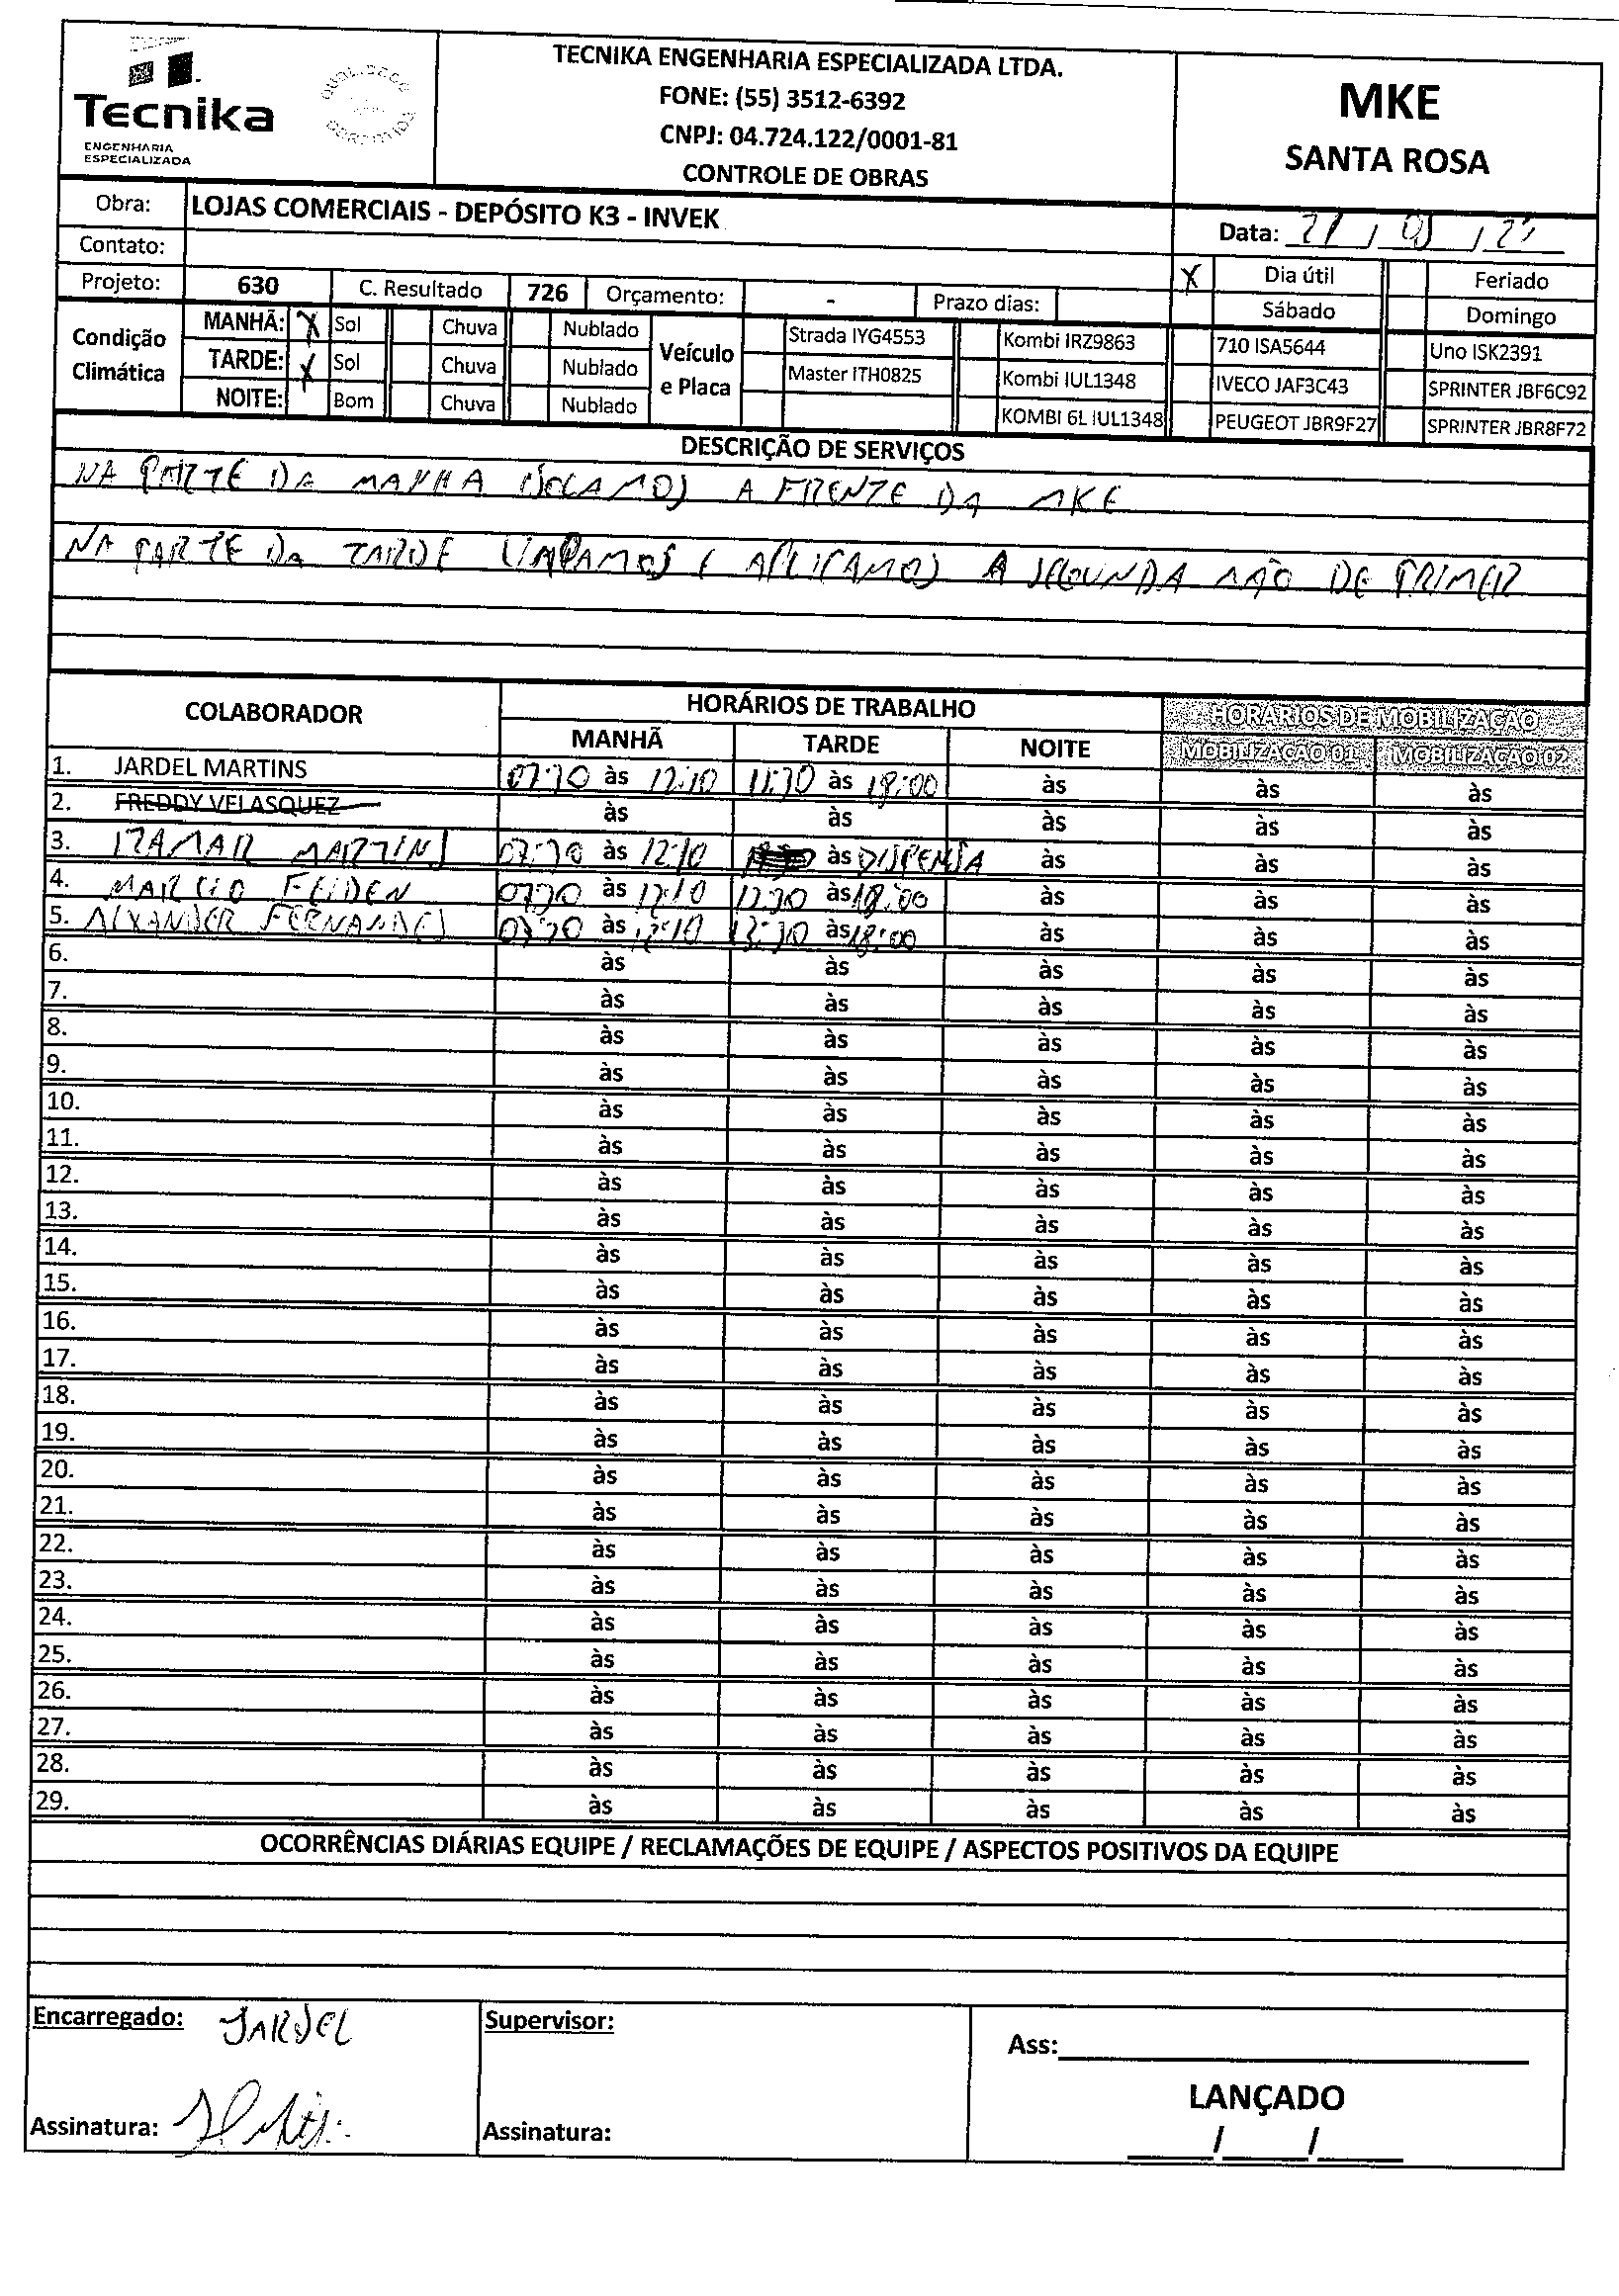 TECNIKA ENGENHARIA ESPECIALIZADA LTDA.
FONE: (55) 3512-6392
CNPJ: 04.724.122/0001-81
CONTROLE DE OBRAS
Tecnika
ENGENHARIA
ESPECIALIZADA
MKE
SANTA ROSA
Obra: LOJAS COMERCIAIS - DEPÓSITO K3 - INVEK
Data:
Contato:
X Dia útil Feriado
Projeto: 630 C. Resultado 726 Orçamento: - Prazo dias:
Sábado Domingo
Condição Climática
MANHÃ: X Sol Chuva Nublado
TARDE: X Sol Chuva Nublado
NOITE: Bom Chuva Nublado
Veículo e Placa
Strada IYG4553 Kombi IRZ9863 710 ISA5644 Uno ISK2391
Master ITH0825 Kombi IUL1348 IVECO JAF3C43 SPRINTER JBF6C92
KOMBI 6L IUL1348 PEUGEOT JBR9F27 SPRINTER JBR8F72
DESCRIÇÃO DE SERVIÇOS
NA PARTE DA MANHA ISOLAMOS A FRENTE DA MKE
NA PARTE DA TARDE LIMPAMOS E APLICAMOS A SEGUNDA MÃO DE PRIMER
COLABORADOR HORÁRIOS DE TRABALHO HORÁRIOS DE MOBILIZAÇÃO
MANHÃ TARDE NOITE MOBILIZAÇÃO 01 MOBILIZAÇÃO 02
1. JARDEL MARTINS 07:30 às 12:10 13:30 às 18:00 às às às
2. FREDDY VELASQUEZ às às às às às
3. IZAMAR MARTINS 07:30 às 12:10 às DISPENSA às às às
4. MARCIO FEIDEN 07:30 às 12:10 13:30 às 18:00 às às às
5. ALXANDER FERNANDES 07:30 às 12:10 13:30 às 18:00 às às às
6. às às às às às
7. às às às às às
8. às às às às às
9. às às às às às
10. às às às às às
11. às às às às às
12. às às às às às
13. às às às às às
14. às às às às às
15. às às às às às
16. às às às às às
17. às às às às às
18. às às às às às
19. às às às às às
20. às às às às às
21. às às às às às
22. às às às às às
23. às às às às às
24. às às às às às
25. às às às às às
26. às às às às às
27. às às às às às
28. às às às às às
29. às às às às às
OCORRÊNCIAS DIÁRIAS EQUIPE / RECLAMAÇÕES DE EQUIPE / ASPECTOS POSITIVOS DA EQUIPE
Encarregado: JARDEL
Supervisor:
Ass:
LANÇADO
Assinatura:
Assinatura:
/ /